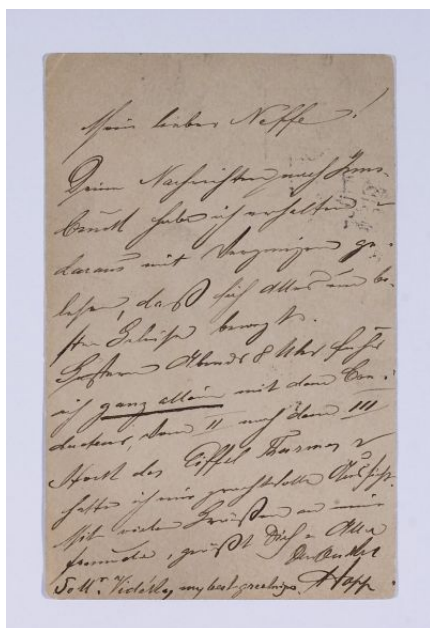 Mein lieber Neffe!
Deine Nachrichten nach Inns-
bruck habe ich erhalten u
daraus mit Vergnügen ge-
lesen, daß sich Alles im be-
sten Geleise bewegt.
Gestern Abends 8 Uhr fuhr
ich ganz allein mit dem Con-
ducteur, vom II nach dem III
Stock des Eiffel Thurmes u
hatte ich eine prachtvolle Aussicht.
Mit vielen Grüßen an meine
Freunde, grüßt Dich u Alle
Der Onkel
To Mr. my best greetings. Hopp.